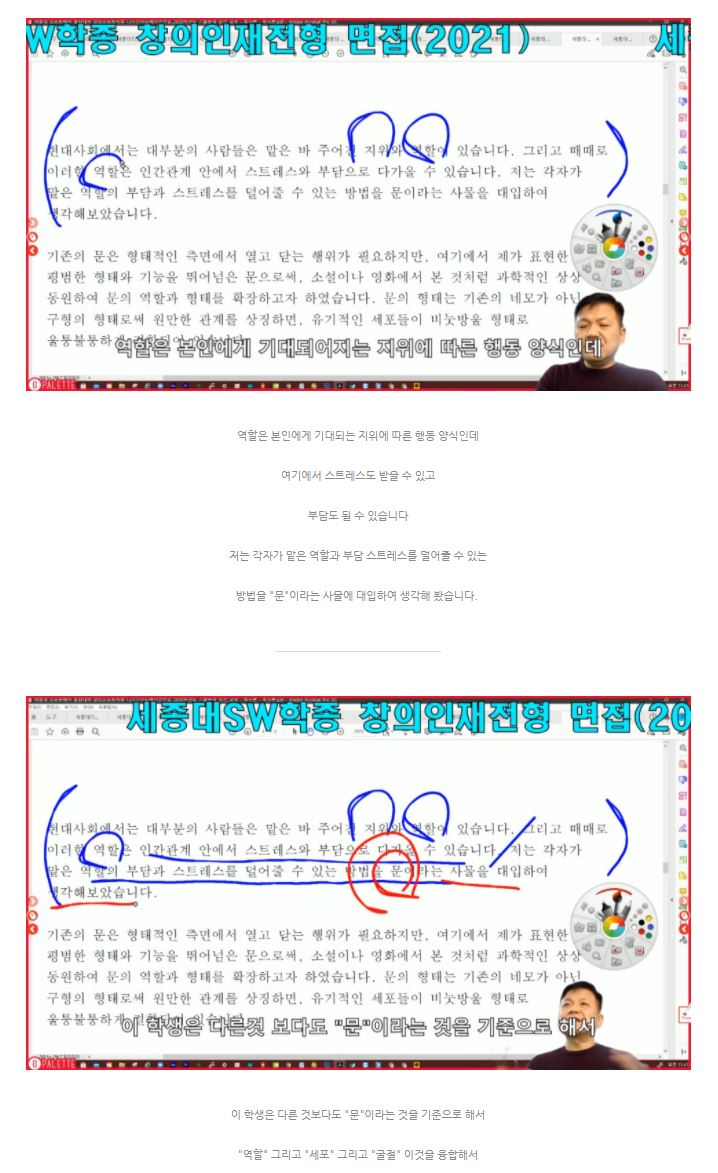 W학종 창의인재전형 면접(2021) 세
현대사회에서는 대부분의 사람들은 맡은 바 주어진 지위와 역할이 있습니다. 그리고 때때로
이러한 역할은 인간관계 안에서 스트레스와 부담으로 다가올 수 있습니다. 저는 각자가
맡은 역할의 부담과 스트레스를 덜어줄 수 있는 방법을 문이라는 사물을 대입하여
생각해보았습니다.
기존의 문은 형태적인 측면에서 열고 닫는 행위가 필요하지만, 여기에서 제가 표현한
평범한 형태와 기능을 뛰어넘은 문으로써, 소설이나 영화에서 본 것처럼 과학적인 상상
동원하여 문의 역할과 형태를 확장하고자 하였습니다. 문의 형태는 기존의 네모가 아닌
구형의 형태로써 원만한 관계를 상징하면, 유기적인 세포들이 비눗방울 형태로
울퉁불퉁하게
역할은 본인에게 기대되어지는 지위에 따른 행동 양식인데
PALETTE
역할은 본인에게 기대되는 지위에 따른 행동 양식인데
여기에서 스트레스도 받을 수 있고
부담도 될 수 있습니다
저는 각자가 맡은 역할과 부담 스트레스를 덜어줄 수 있는
방법을 "문"이라는 사물에 대입하여 생각해 봤습니다.
세종대SW학종 창의인재전형 면접(20
현대사회에서는 대부분의 사람들은 맡은 바 주어진 지위와 역할이 있습니다. 그리고 때때로
이러한 역할은 인간관계 안에서 스트레스와 부담으로 다가올 수 있습니다. 저는 각자가
맡은 역할의 부담과 스트레스를 덜어줄 수 있는 방법을 문이라는 사물을 대입하여
생각해보았습니다.
기존의 문은 형태적인 측면에서 열고 닫는 행위가 필요하지만, 여기에서 제가 표현한
평범한 형태와 기능을 뛰어넘은 문으로써, 소설이나 영화에서 본 것처럼 과학적인 상상
동원하여 문의 역할과 형태를 확장하고자 하였습니다. 문의 형태는 기존의 네모가 아닌
구형의 형태로써 원만한 관계를 상징하면, 유기적인 세포들이 비눗방울 형태로
울퉁불퉁하게
이 학생은 다른것 보다도 "문"이라는 것을 기준으로 해서
PALETTE
이 학생은 다른 것보다도 "문"이라는 것을 기준으로 해서
"역할" 그리고 "세포" 그리고 "굴절" 이것을 융합해서